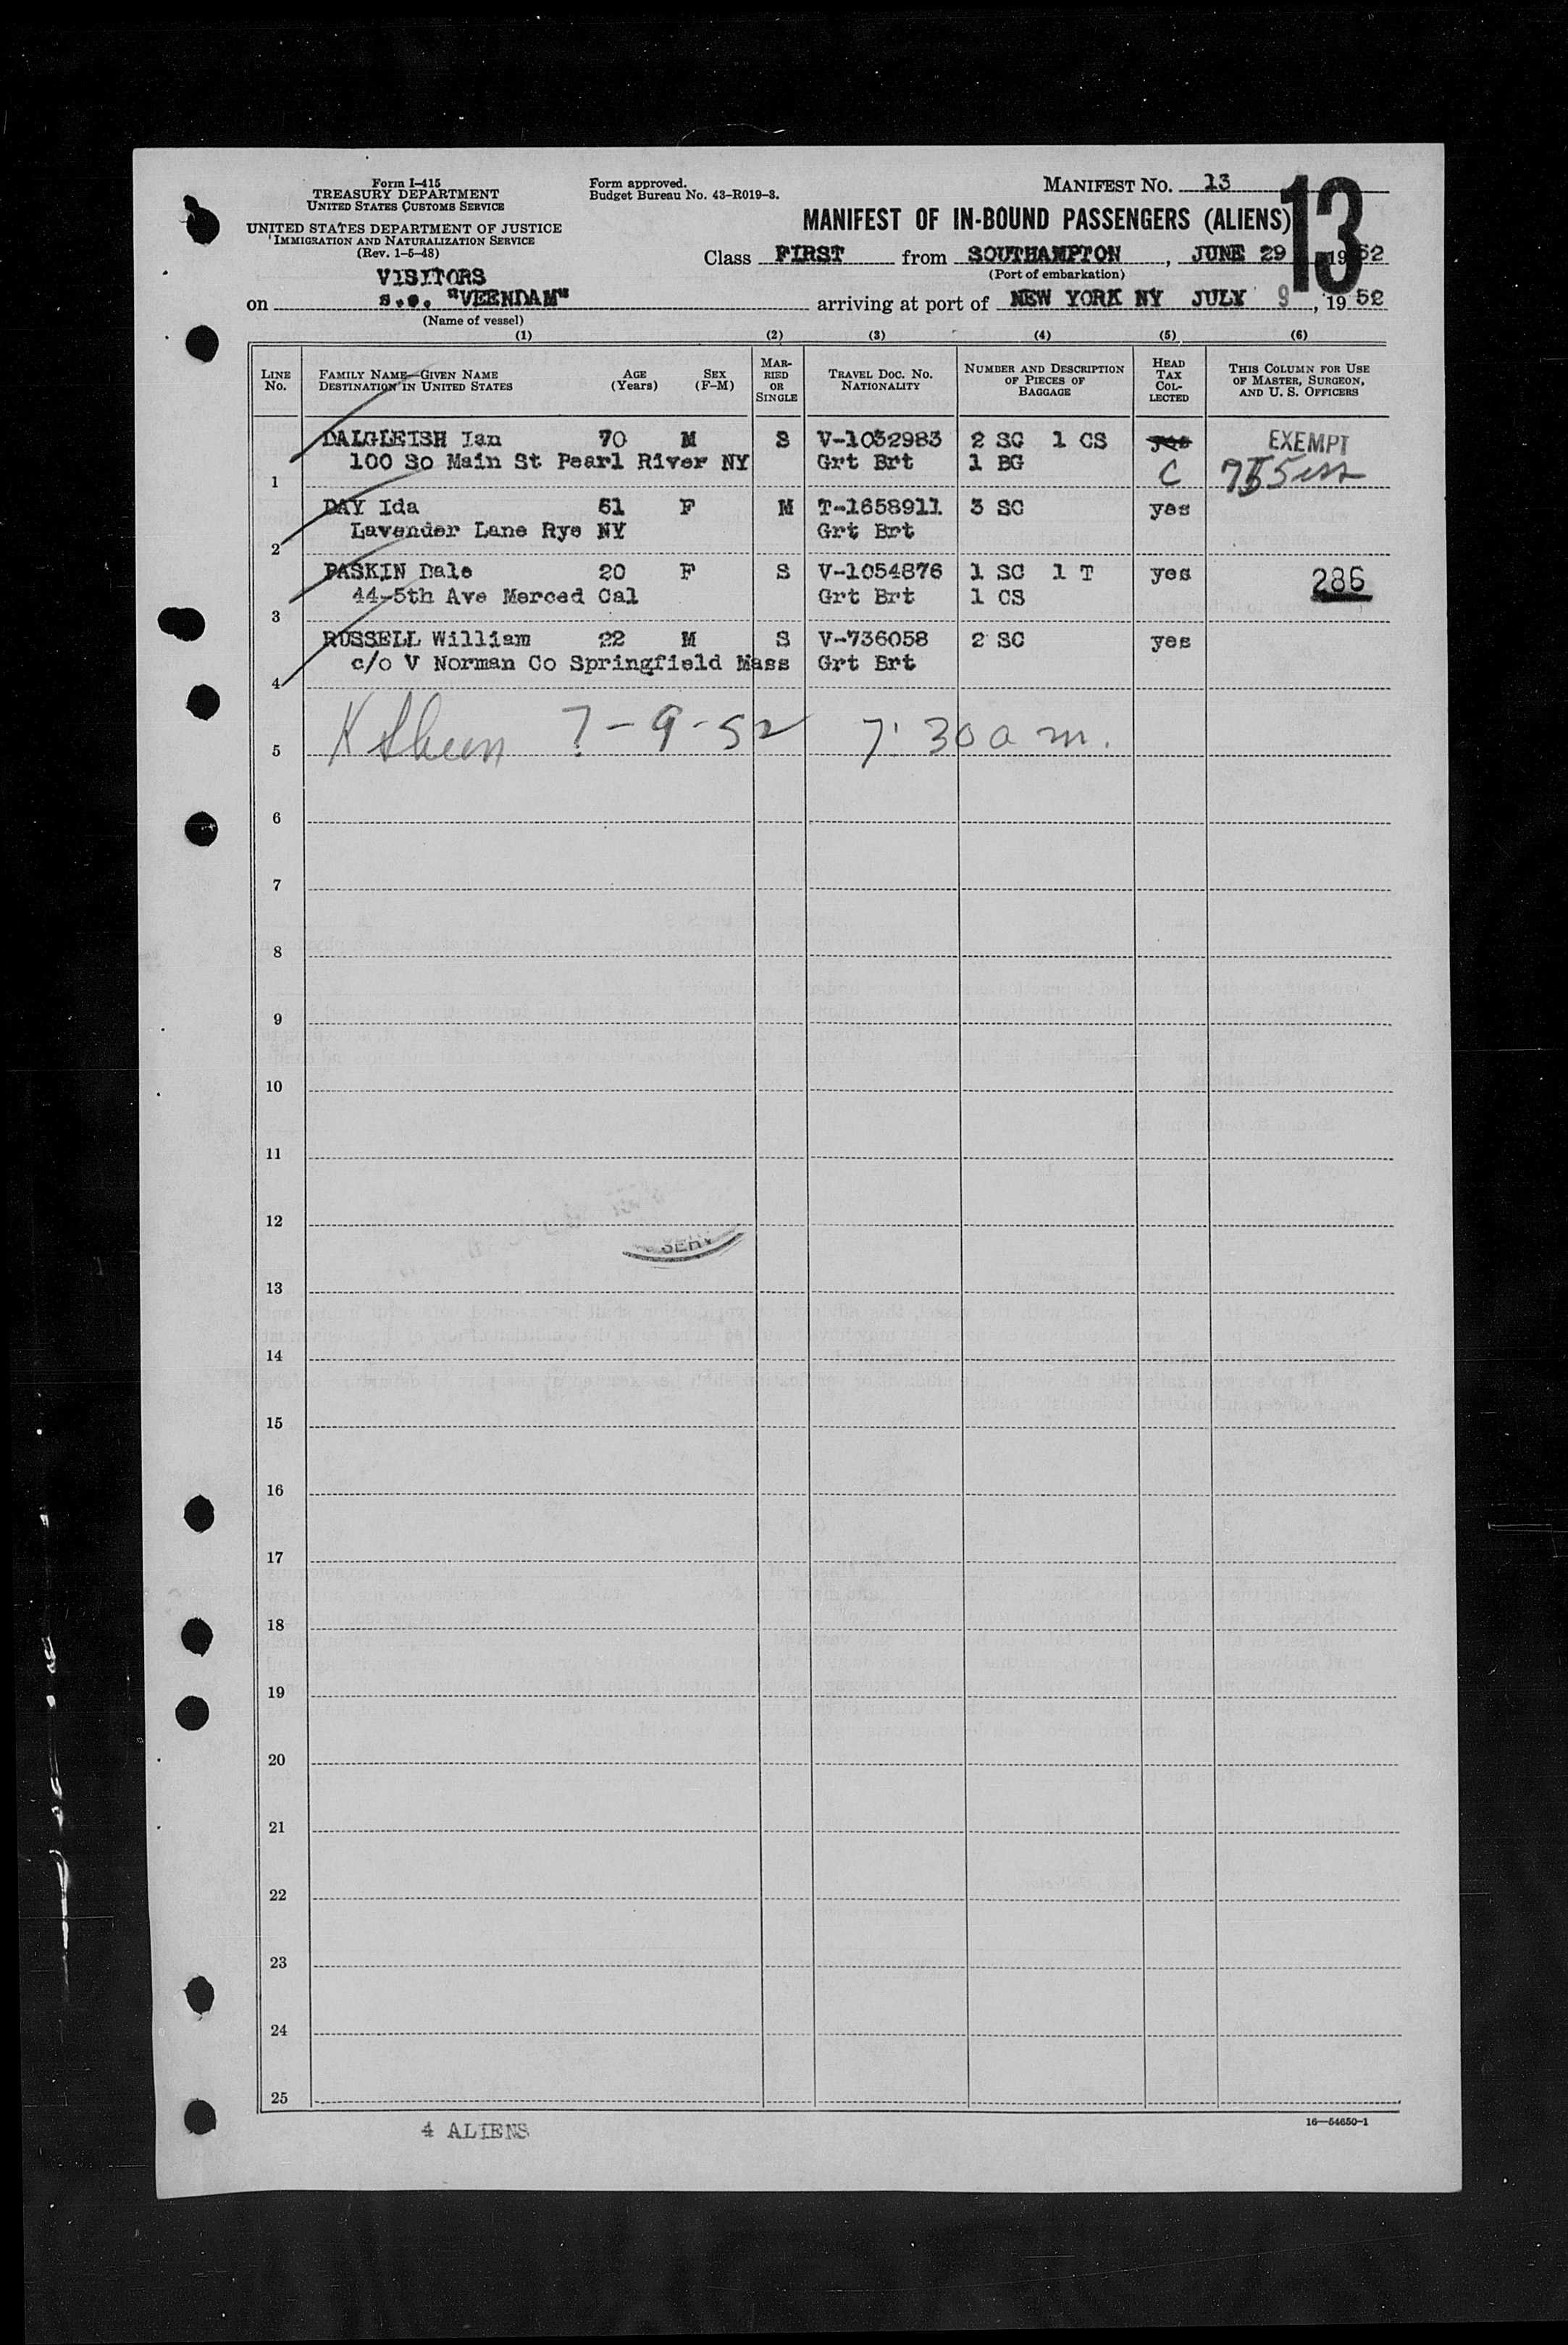 Form I-415
TREASURY DEPARTMENT
UNITED STATES CUSTOMS SERVICE
UNITED STATES DEPARTMENT OF JUSTICE
IMMIGRATION AND NATURALIZATION SERVICE
(Rev. 1-5-48)
Form approved.
Budget Bureau No. 43-R019-3.
MANIFEST NO. 13
13
MANIFEST OF IN-BOUND PASSENGERS (ALIENS)
Class FIRST from SOUTHAMPTON, JUNE 29 1952
(Port of embarkation)
VISITORS
on s.s. "VEENDAM" arriving at port of NEW YORK NY JULY 9, 1952
(Name of vessel)
(1) (2) (3) (4) (5) (6)
LINE No. FAMILY NAME—GIVEN NAME DESTINATION IN UNITED STATES AGE (Years) SEX (F-M) MARRIED OR SINGLE TRAVEL DOC. NO. NATIONALITY NUMBER AND DESCRIPTION OF PIECES OF BAGGAGE HEAD TAX COLLECTED THIS COLUMN FOR USE OF MASTER, SURGEON, AND U. S. OFFICERS
DALGLEISH Ian 70 M S V-1032983 2 SC 1 CS yes EXEMPT
1 100 So Main St Pearl River NY Grt Brt 1 BG C
DAY Ida 51 F M T-1658911 3 SC yes
2 Lavender Lane Rye NY Grt Brt
PASKIN Dale 20 F S V-1054876 1 SC 1 T yes 286
3 44-5th Ave Merced Cal Grt Brt 1 CS
RUSSELL William 22 M S V-736058 2 SC yes
4 c/o V Norman Co Springfield Mass Grt Brt
5 7-9-52 7:30 a m.
6
7
8
9
10
11
12
SERV
13
14
15
16
17
18
19
20
21
22
23
24
25
4 ALIENS
16—54650-1